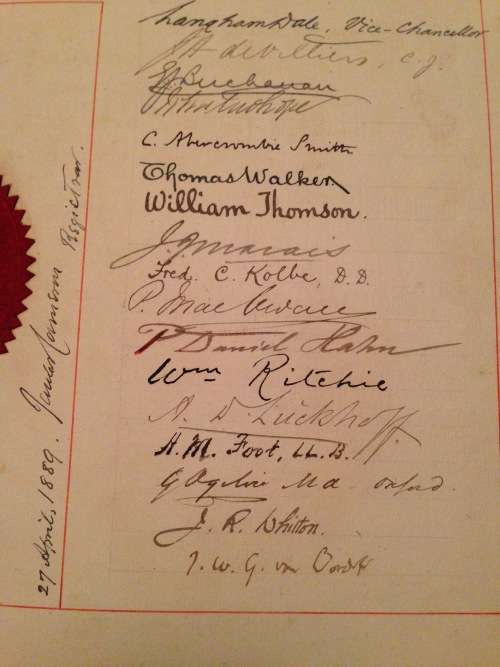 Langham Dale, Vice-Chancellor
J H de Villiers, C. J.
E J Buchanan
C. Abercrombie Smith
Thomas Walker
William Thomson.
J. J. Marais
Fred. C. Kolbe, D. D.
P. MacOwan
P Daniel Hahn
Wm Ritchie
A. D. Lückhoff
H. M. Foot, LL.B.
G Ogilvie M A Oxford.
J. R. Whitton.
J. W. G. van Oordt
27 April, 1889. James Cameron Registrar.